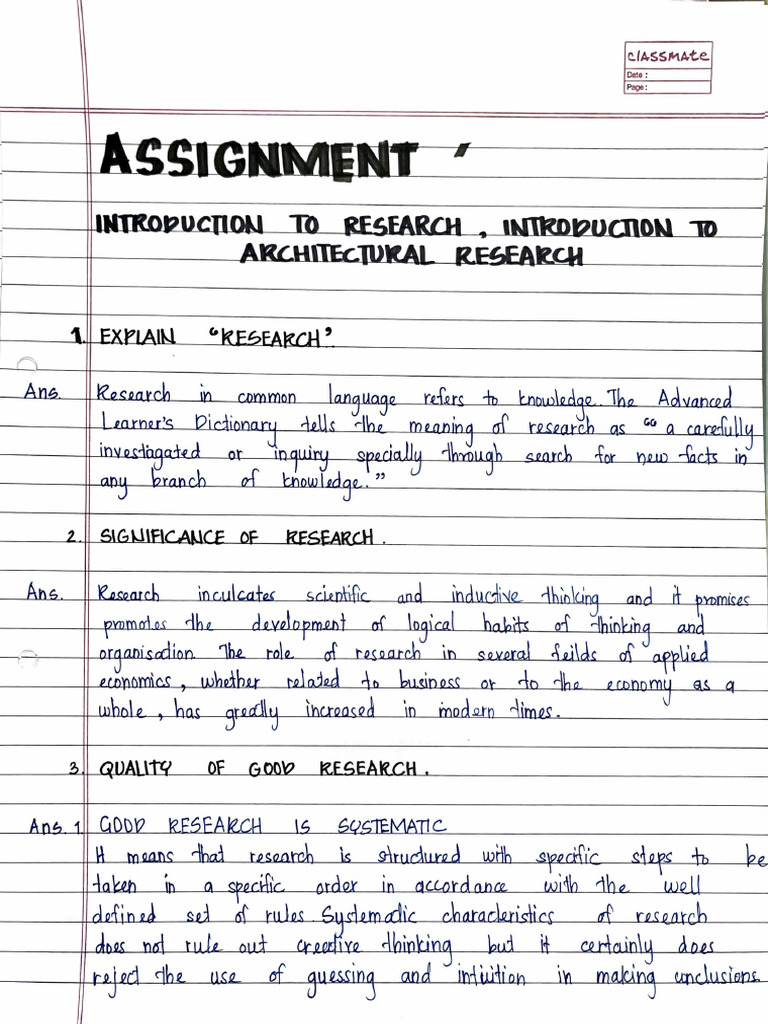 classmate
Date :
Page :
ASSIGNMENT '
INTRODUCTION TO RESEARCH , INTRODUCTION TO
ARCHITECTURAL RESEARCH
1. EXPLAIN "RESEARCH".
Ans. Research in common language refers to knowledge. The Advanced
Learner's Dictionary tells the meaning of research as "a carefully
investigated or inquiry specially through search for new facts in
any branch of knowledge."
2. SIGNIFICANCE OF RESEARCH.
Ans. Research inculcates scientific and inductive thinking and it promises
promotes the development of logical habits of thinking and
organisation. The role of research in several feilds of applied
economics, whether related to business or to the economy as a
whole, has greatly increased in modern times.
3. QUALITY OF GOOD RESEARCH.
Ans. 1. GOOD RESEARCH IS SYSTEMATIC
It means that research is structured with specific steps to be
taken in a specific order in accordance with the well
defined set of rules. Systematic characteristics of research
does not rule out creative thinking but it certainly does
reject the use of guessing and intuition in making conclusions.